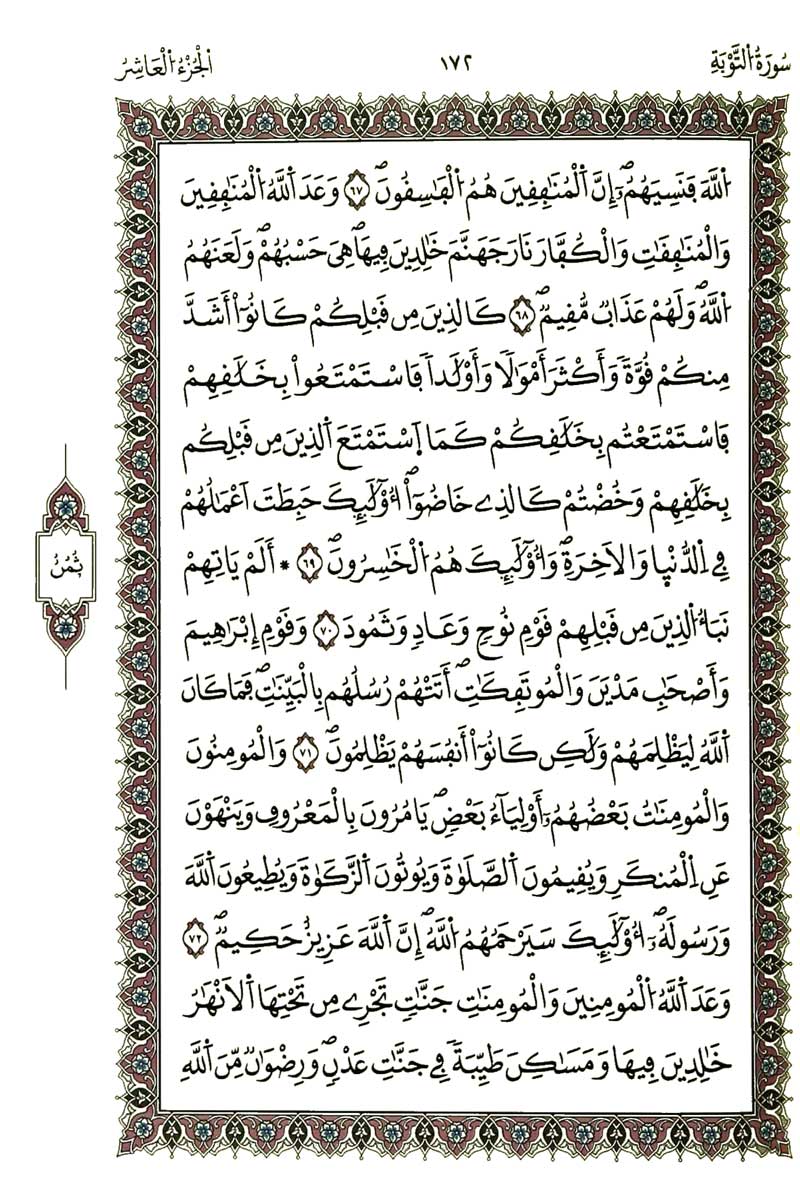 سُورَةُ التَّوْبَةِ
١٧٢
الْجُزْءُ الْعَاشِرُ
اَللَّهَ فَنَسِيَهُمُۥٓۖ إِنَّ اَلْمُنَٰفِقِينَ هُمُ اُلْفَٰسِقُونَۖ ٦٧ وَعَدَ اَللَّهُ اُلْمُنَٰفِقِينَ
وَالْمُنَٰفِقَٰتِ وَالْكُفَّارَ نَارَ جَهَنَّمَ خَٰلِدِينَ فِيهَاۖ هِيَ حَسْبُهُمْۖ وَلَعَنَهُمُ
اُللَّهُۖ وَلَهُمْ عَذَابٞ مُّقِيمٞۖ ٦٨ كَالذِينَ مِن قَبْلِكُمْ كَانُوٓاْ أَشَدَّ
مِنكُمْ قُوَّةٗ وَأَكْثَرَ أَمْوَٰلٗا وَأَوْلَٰداٗ فَاسْتَمْتَعُواْ بِخَلَٰقِهِمْ
فَاسْتَمْتَعْتُم بِخَلَٰقِكُمْ كَمَا اَ۪سْتَمْتَعَ اَلذِينَ مِن قَبْلِكُم
بِخَلَٰقِهِمْ وَخُضْتُمْ كَالذِے خَاضُوٓاْۖ أُوْلَٰٓئِكَ حَبِطَتَ اَعْمَٰلُهُمْ
فِے اِلدُّنْي۪ا وَالَاخِرَةِۖ وَأُوْلَٰٓئِكَ هُمُ اُلْخَٰسِرُونَۖ ٦٩ * أَلَمْ يَاتِهِمْ
نَبَأُ اُلذِينَ مِن قَبْلِهِمْ قَوْمِ نُوحٖ وَعَادٖ وَثَمُودَ ٧٠ وَقَوْمِ إِبْرَٰهِيمَ
وَأَصْحَٰبِ مَدْيَنَ وَالْمُوتَفِكَٰتِۖ أَتَتْهُمْ رُسُلُهُم بِالْبَيِّنَٰتِۖ فَمَا كَانَ
اَللَّهُ لِيَظْلِمَهُمْ وَلَٰكِن كَانُوٓاْ أَنفُسَهُمْ يَظْلِمُونَۖ ٧١ وَالْمُومِنُونَ
وَالْمُومِنَٰتُ بَعْضُهُمُۥٓ أَوْلِيَآءُ بَعْضٖۖ يَامُرُونَ بِالْمَعْرُوفِ وَيَنْهَوْنَ
عَنِ اِلْمُنكَرِ وَيُقِيمُونَ اَلصَّلَوٰةَ وَيُوتُونَ اَلزَّكَوٰةَ وَيُطِيعُونَ اَللَّهَ
وَرَسُولَهُۥٓۖ أُوْلَٰٓئِكَ سَيَرْحَمُهُمُ اُللَّهُۖ إِنَّ اَللَّهَ عَزِيزٌ حَكِيمٞۖ ٧٢
وَعَدَ اَللَّهُ اُلْمُومِنِينَ وَالْمُومِنَٰتِ جَنَّٰتٖ تَجْرِے مِن تَحْتِهَا اَلَانْهَٰرُ
خَٰلِدِينَ فِيهَا وَمَسَٰكِنَ طَيِّبَةٗ فِے جَنَّٰتِ عَدْنٖۖ وَرِضْوَٰنٞ مِّنَ اَللَّهِ
ثُمُنُ